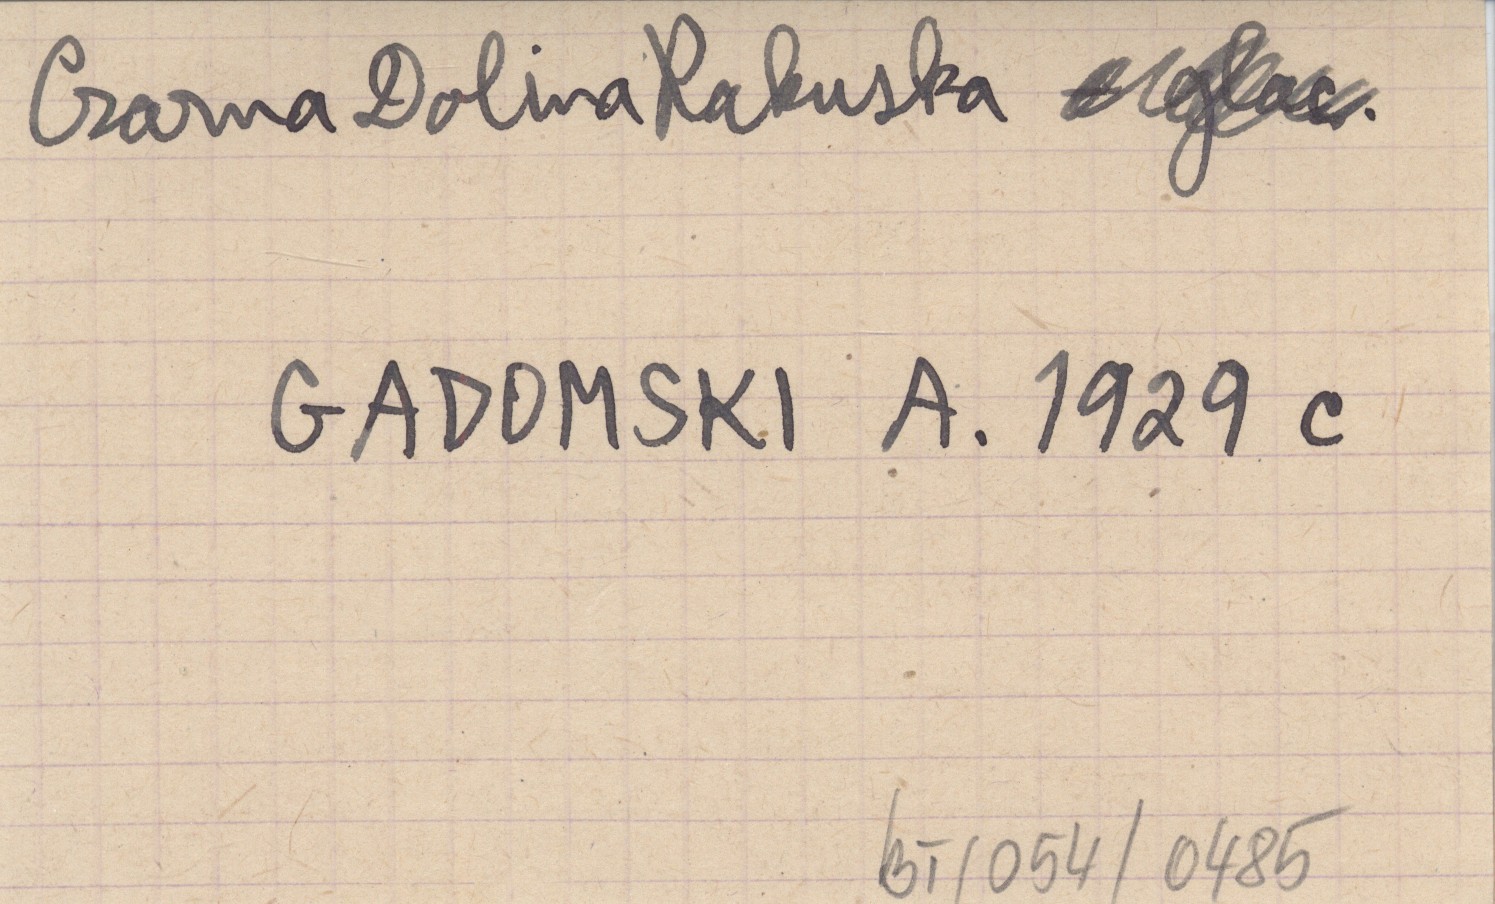 Czarna Dolina Rakuska - glac.
GADOMSKI A. 1929 c
BT/054/0485